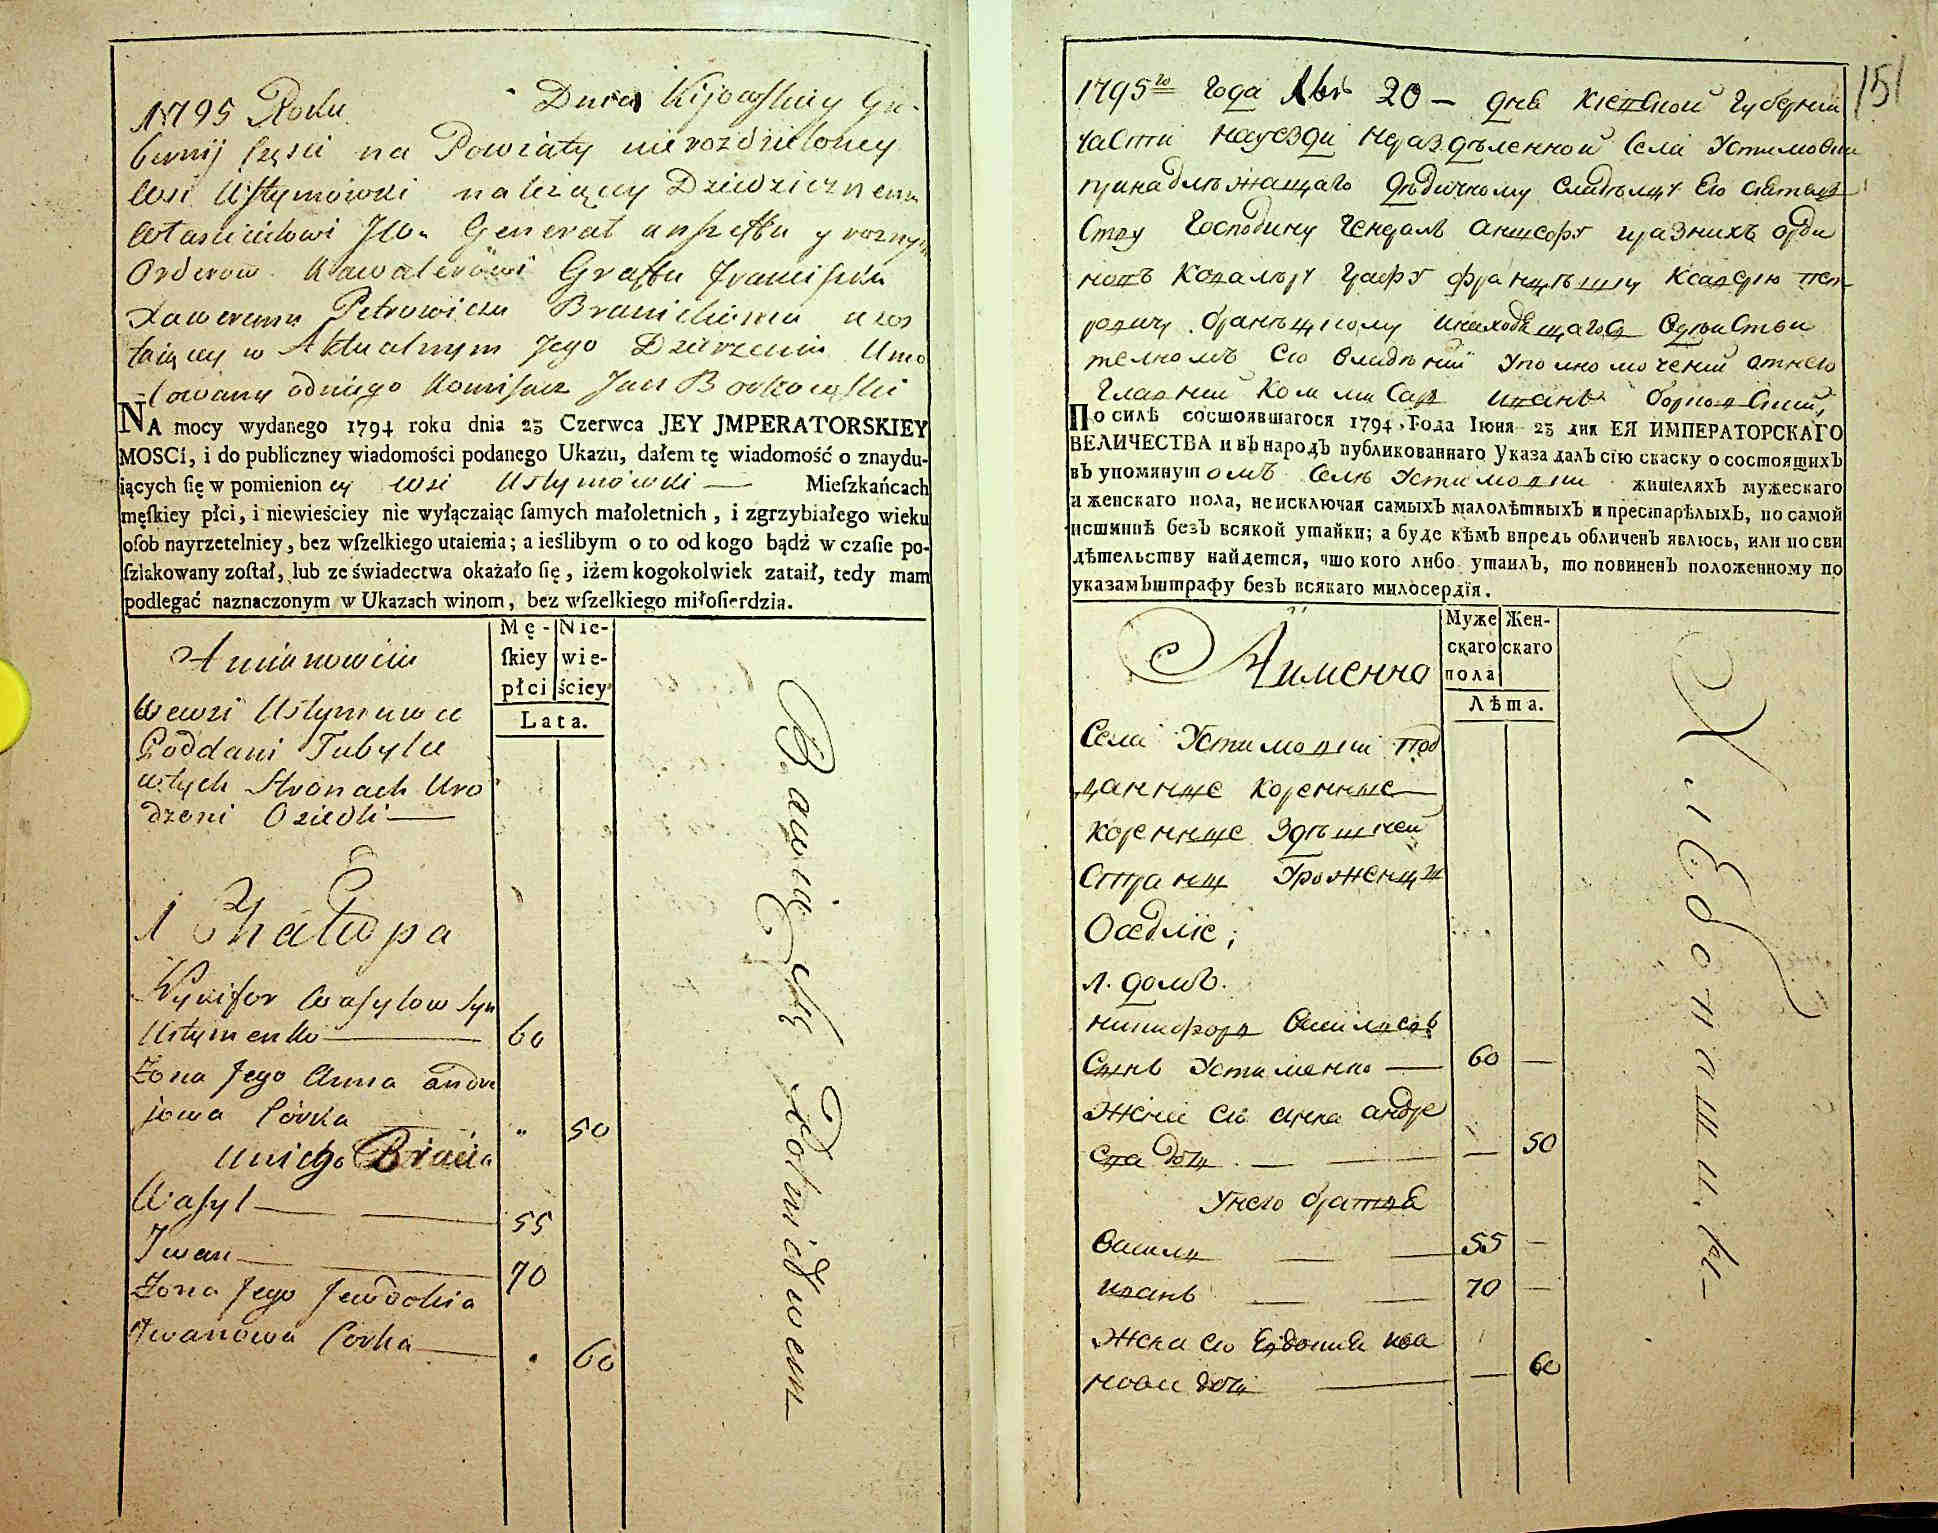 1795 Roku Dnia Kijowskiey Gu-
bernij Częsci na Powiaty nierozdzieloney
Wsi Ustymowki należącey Dziedzicznemu
Własnicielowi JW. Generał anszeffu y roznych
Orderow Kawalerowi Graffu Franciszku
Xaweremu Petrowiczu Branickiemu a zos
taiącey w Aktualnym Jego Dzierzeniu Umo
cowany odniego Komisarz Jan Borkowski
NA mocy wydanego 1794 roku dnia 23 Czerwca JEY JMPERATORSKIEY
MOSCI, i do publiczney wiadomości podanego Ukazu, dałem tę wiadomość o znaydu-
iących ſię w pomienion ey wsi Ustymowki — Mieſzkańcach
męſkiey płci, i niewieściey nie wyłączaiąc ſamych małoletnich, i zgrzybiałego wieku
oſob nayrzetelniey, bez wſzelkiego utaienia; a ieślibym o to od kogo bądź w czaſie po-
ſzlakowany zoſtał, lub ze świadectwa okażało ſię, iżem kogokolwiek zataił, tedy mam
podlegać naznaczonym w Ukazach winom, bez wſzelkiego miłoſierdzia.
Amianowicie
Mę-ſkiey płci
Nie-wie-ściey
Lata.
Wewsi Ustymuwce
Poddani Tubylce
wtych Stronach Uro
dzeni Osiedli —
1 Chałupa
Nykifor Wasylow Syn
Ustymenko — 60
Żona Jego Anna andre
jowa Córka — " 50
Uniego Bracia
Wasyl — 55
Iwan — 70
Żona Jego Jewdokia
Iwanowa Corka — . 60
1795го Года Авг 20 — дня Киевской Губернии
части науезди нераздѣленной Села Устимовки
принадлѣжащаго дѣдичному владѣлцу Его сиятель
ству Господину Генералъ аншефу и разнихъ орде
новъ Кавалѣру Графу францѣшку Ксаверию пет
ровичу бранѣцкому инаходящагося вдѣйстви
телномъ его владѣнии Уполномочений отнего
Главний Коммисар иванъ борковский,
По силѣ состоявшагося 1794, Года Іюня 23 дня ЕЯ ИМПЕРАТОРСКАГО
ВЕЛИЧЕСТВА и въ народъ публикованнаго Указа далъ сію скаску о состоящихъ
въ упомянут омъ Селѣ Устимовки жителяхъ мужескаго
и женскаго пола, не исключая самыхъ малолѣтныхъ и престарѣлыхъ, по самой
истиннѣ безъ всякой утайки; а буде кѣмъ впредь обличенъ явлюсь, или по сви
дѣтельству найдется, что кого либо утаилъ, то повиненъ положенному по
указамъ штрафу безъ всякаго милосердія.
Аименно
Муже скаго пола
Жен-скаго
Лѣта.
Села Устимовки под
данные коренные —
коренные здѣшней
Страны Уроженцы
Оседліе;
1. домъ.
никифоръ василевъ
Сынъ Устименко — 60 —
Жена его анна андре
ева дочь — — — 50
Унего братья
василь — — 55 —
иванъ — — 70 —
Жена его Евдокия ива
нова дочь — — 60